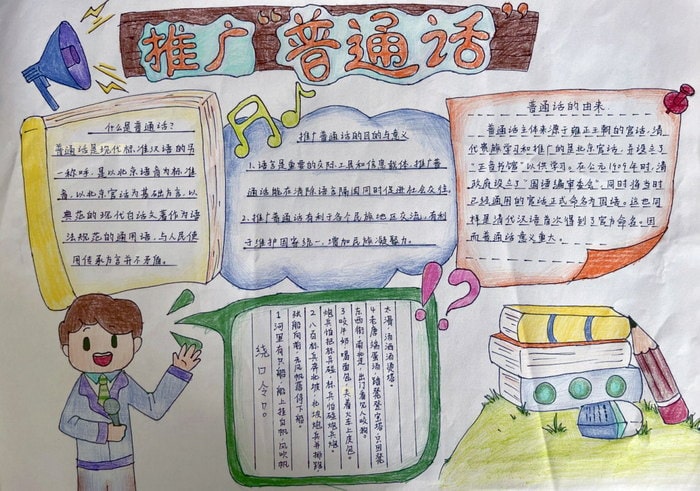 推广“普通话”
什么是普通话?
普通话是现代标准汉语的另
一称呼,是以北京语音为标准
音,以北京官话为基础方言,以
典范的现代白话文著作为语
法规范的通用语,与人民使
用传承方言并不矛盾。
推广普通话的目的与意义
1.语言是重要的交际工具和信息载体,推广普
通话能在消除语言隔阂同时促进社会交往
2.推广普通话有利于各个民族地正交流,有利
于维护国家统一,增加民族凝聚力。
普通话的由来
普通话主体来源于雍正王朝的官话,清
代贵族学习和推广的是北京官话,并设立了
“正音书馆”以供学习。在公元1909年时,清
政府设立了“国语编审委员”,同时将当时
已经通用的官话正式命名为国语。这也同
样是清代汉语首次得到了官方命名。因
而普通话意义重大。
绕口令。
1河里有只船,船上挂白帆,风吹帆
张船向前,无风帆落停下船。
2八百标兵奔北坡,北坡炮兵并排跑
炮兵怕把标兵碰,标兵怕碰炮兵炮
3咬牛奶喝面包,夹着火车上皮包。
东西街,南北走,出门看见人咬狗。
4老唐端蛋汤,踏凳登宝塔,只因凳
太滑,汤洒汤烫塔。
!?